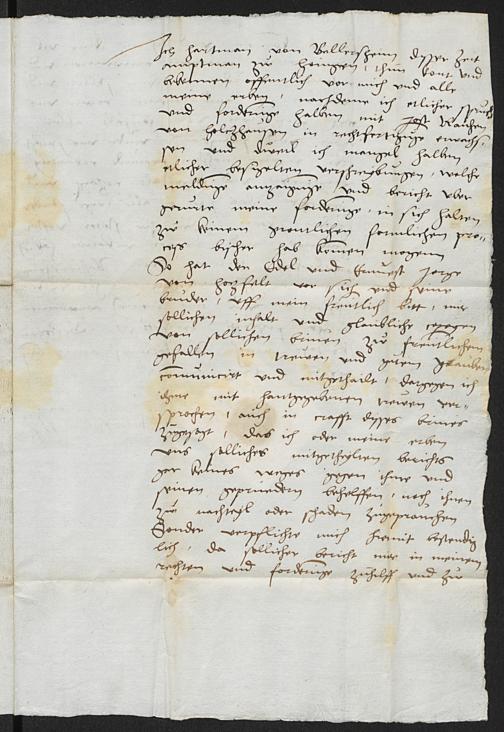 Ich hartman von Bellersheim dysser Zeit
amptman zu hoingen, thun kont und
bekennen offentlich vor mich und alle
meine erben, nachdeme ich etlicher spruch
und forderunge halben mit
von holtzhausen in rechtfertigunge erwachs-
sen und dweil ich mangel halben
etlicher versigelten verschreybungen, welche
meldunge anzeigunge und bericht uber
gerurte meine forderunge, in sich halten
zu keinem grontlichen formlichen pro-
ceß bißher hab komen mogenn
So hat der Edel und Ernuest Jorge
vom hatzfelt vor sich und seine
bruder, uff mein freuntlich bitt, mir
sollichen inhalt und glaubliche copeyen
von sollichen briuen zu freuntlichem
gefallen in treuwen und gutem glauben
communicirt und mitgetheilt, dargegen ich
ihme mit hantgegebenen treuwen ver-
sprochen, auch in crafft dysses brieues
zugesagt, das ich oder meine erben
uns solliches mitgetheylten berichts
gar keines weges gegen ihme und
seinen gepruedern behelffen, noch ihnen
zu nachteyl oder schaden zugeprauchen
Sonder verpflichte mich hiemit bestendig
lich, da sollicher bericht mir in meinem
rechten und forderunge zuhilff und zu